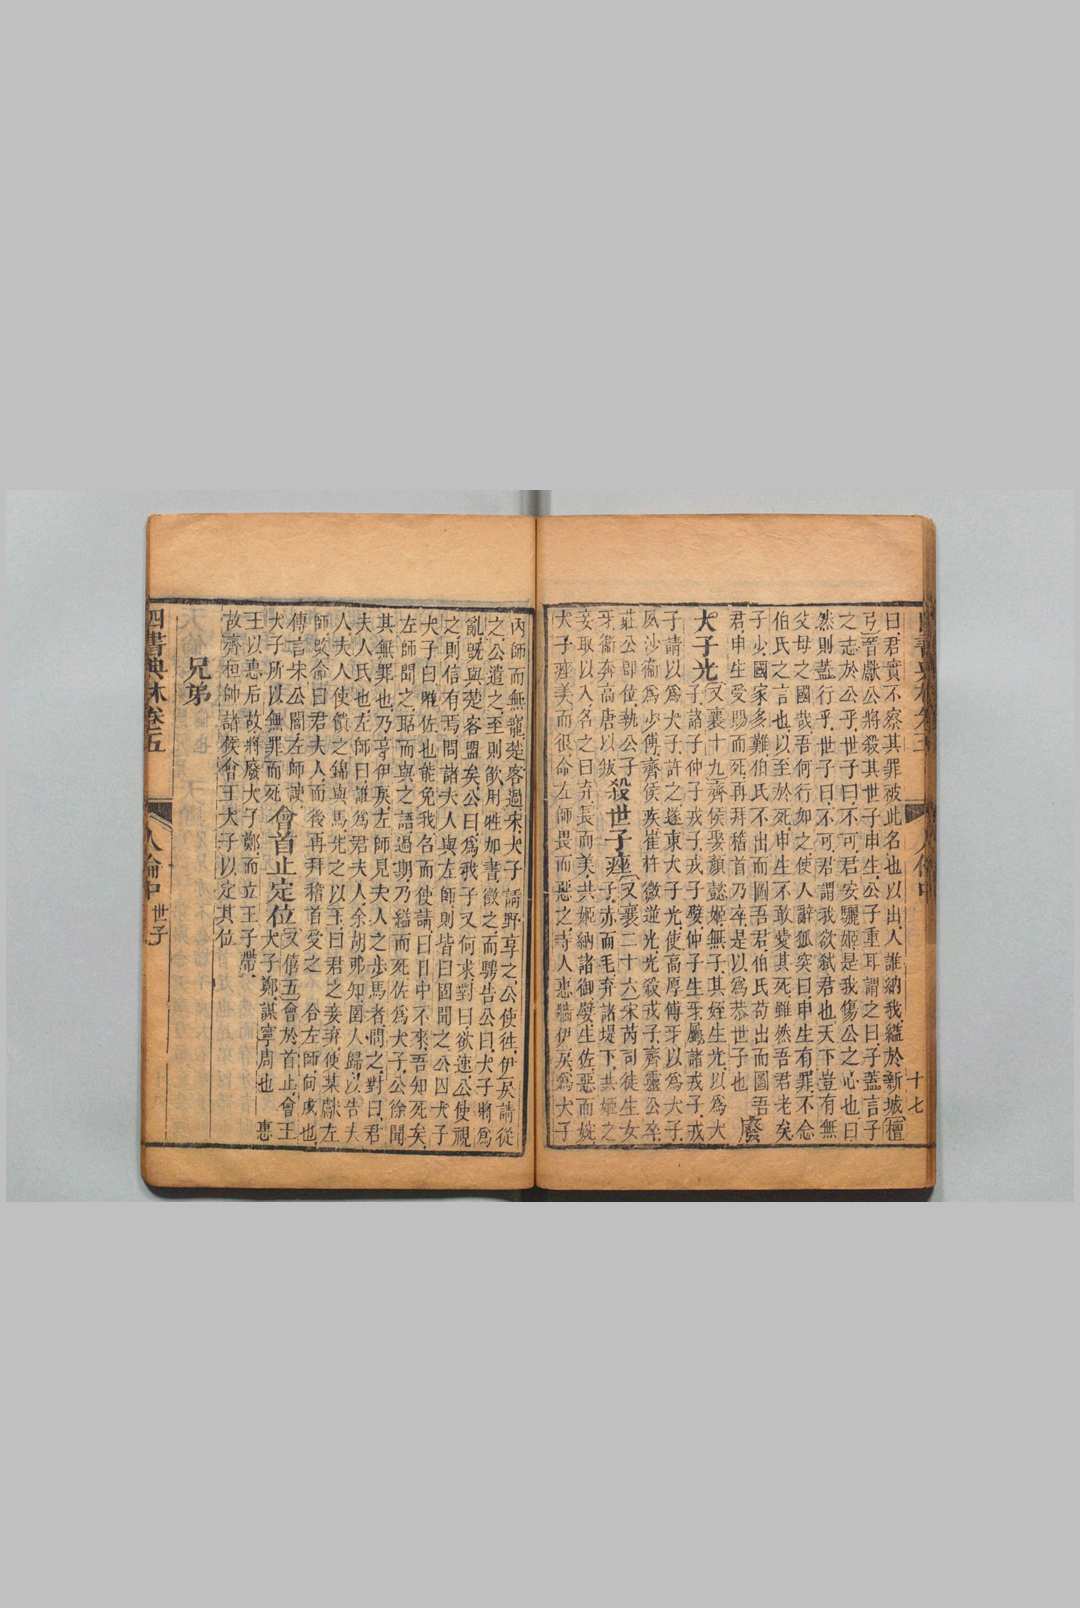 十七
曰君實不察其罪被此名也以出人誰納我縊於新城檀
弓晉獻公將殺其世子申生公子重耳謂之曰子蓋言子
之志於公乎世子曰不可君安驪姬是我傷公之心也曰
然則蓋行乎世子曰不可君謂我欲弒君也天下豈有無
父母之國哉吾何行如之使人辭狐突曰申生有罪不念
伯氏之言也以至於死申生不敢愛其死雖然吾君老矣
子少國家多難伯氏不出而圖吾君伯氏苟出而圖吾
君申生受賜而死再拜稽首乃卒是以為恭世子也 廢
大子光 又襄十九齊侯娶顏懿姬無子其姪生光以為大
子諸子仲子戎子戎子嬖仲子生牙屬諸戎子戎
子請以為大子許之遂東大子光使高厚傅牙以為大子
夙沙衛為少傅齊侯疾崔杼微逆光光殺戎子齊靈公卒
莊公即位執公子
牙衛奔高唐以叛 殺世子痤 又襄二十六宋芮司徒生女
子赤而毛弃諸堤下共姬之
妾取以入名之曰弃長而美共姬納諸御嬖生佐惡而婉
大子痤美而很合左師畏而惡之寺人惠牆伊戾為大子
內師而無寵楚客過宋大子請野享之公使往伊戾請從
之公遣之至則欿用牲加書徵之而騁告公曰大子將為
亂既與楚客盟矣公曰為我子又何求對曰欲速公使視
之則信有焉問諸夫人與左師則皆曰固聞之公囚大子
大子曰唯佐也能免我召而使請曰日中不來吾知死矣
左師聞之聒而與之語過期乃縊而死佐為大子公徐聞
其無罪也乃亨伊戾左師見夫人之步馬者問之對曰君
夫人氏也左師曰誰為君夫人余胡弗知圉人歸以告夫
人夫人使饋之錦與馬先之以玉曰君之妾弃使某獻左
師改命曰君夫人而後再拜稽首受之
大子所以無罪而死 會首止定位 又僖五會於首止會王
大子鄭謀寧周也 惠
王以惠后故將廢大子鄭而立王子帶
故齊桓帥諸侯會王大子以定其位
兄弟
四書典林卷五
人倫中 世子